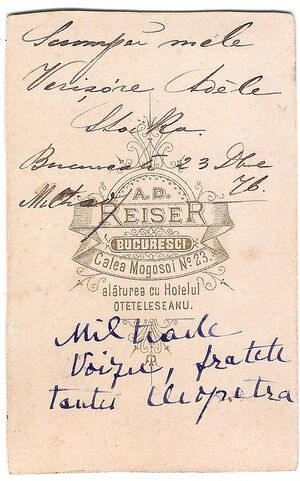 Scumpei mele
Verișóre Adèle
Bucuresci 23 Dbe
76.
A.D.
REISER
BUCURESCI
Calea Mogosoi No 23.
alăturea cu Hotelul
OTETELESEANU.
Miltiade
Voizu, fratele
tantei Cleopatra